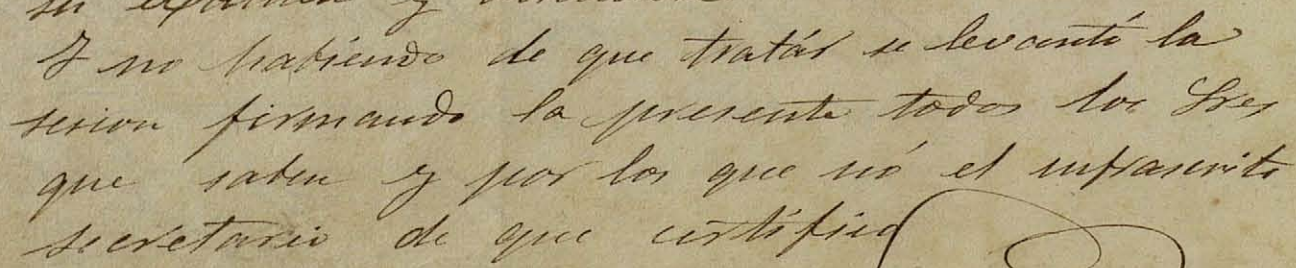 su examen y
Y no habiendo de que tratár se levantó la
sesion firmando la presente todos los Sres
que saben y por los que nó el infrascrito
secretario de que certifico